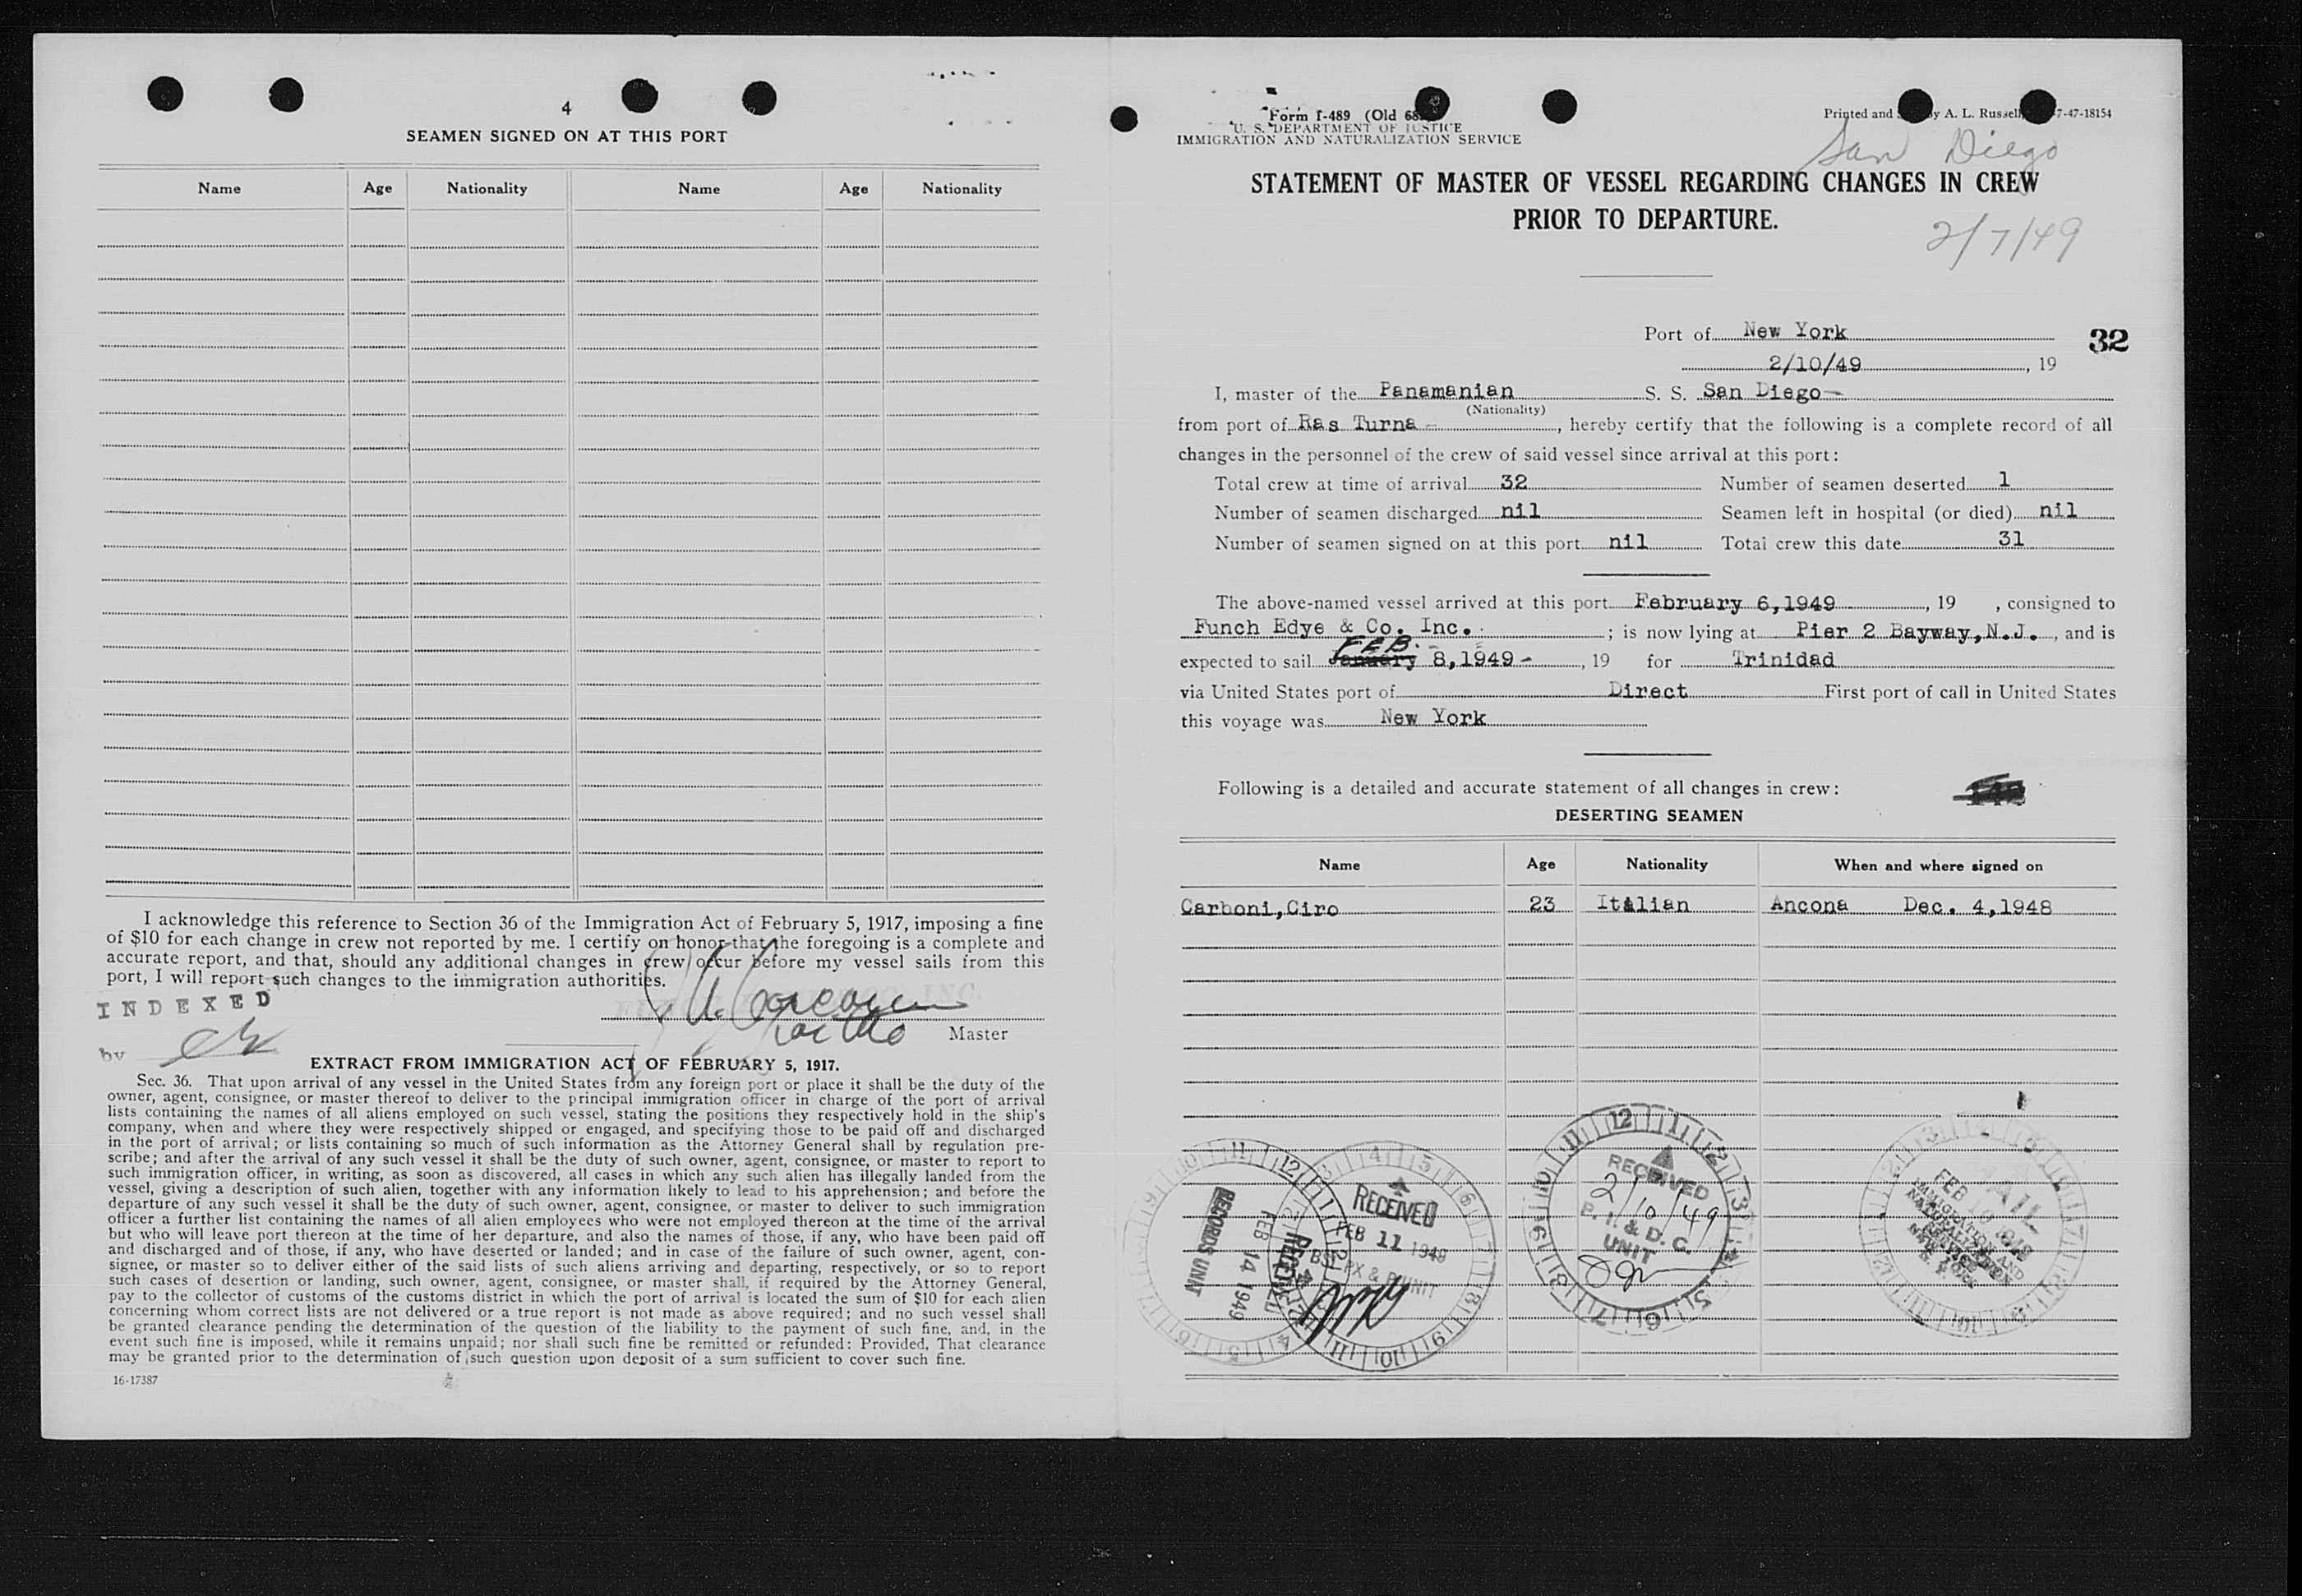 4
SEAMEN SIGNED ON AT THIS PORT
Name Age Nationality Name Age Nationality
I acknowledge this reference to Section 36 of the Immigration Act of February 5, 1917, imposing a fine
of $10 for each change in crew not reported by me. I certify on honor that the foregoing is a complete and
accurate report, and that, should any additional changes in crew occur before my vessel sails from this
port, I will report such changes to the immigration authorities.
INDEXED
Master
by
EXTRACT FROM IMMIGRATION ACT OF FEBRUARY 5, 1917.
Sec. 36. That upon arrival of any vessel in the United States from any foreign port or place it shall be the duty of the
owner, agent, consignee, or master thereof to deliver to the principal immigration officer in charge of the port of arrival
lists containing the names of all aliens employed on such vessel, stating the positions they respectively hold in the ship's
company, when and where they were respectively shipped or engaged, and specifying those to be paid off and discharged
in the port of arrival; or lists containing so much of such information as the Attorney General shall by regulation pre-
scribe; and after the arrival of any such vessel it shall be the duty of such owner, agent, consignee, or master to report to
such immigration officer, in writing, as soon as discovered, all cases in which any such alien has illegally landed from the
vessel, giving a description of such alien, together with any information likely to lead to his apprehension; and before the
departure of any such vessel it shall be the duty of such owner, agent, consignee, or master to deliver to such immigration
officer a further list containing the names of all alien employees who were not employed thereon at the time of the arrival
but who will leave port thereon at the time of her departure, and also the names of those, if any, who have been paid off
and discharged and of those, if any, who have deserted or landed; and in case of the failure of such owner, agent, con-
signee, or master so to deliver either of the said lists of such aliens arriving and departing, respectively, or so to report
such cases of desertion or landing, such owner, agent, consignee, or master shall, if required by the Attorney General,
pay to the collector of customs of the customs district in which the port of arrival is located the sum of $10 for each alien
concerning whom correct lists are not delivered or a true report is not made as above required; and no such vessel shall
be granted clearance pending the determination of the question of the liability to the payment of such fine, and, in the
event such fine is imposed, while it remains unpaid; nor shall such fine be remitted or refunded: Provided, That clearance
may be granted prior to the determination of such question upon deposit of a sum sufficient to cover such fine.
16-17387
Form I-489 (Old 68
U. S. DEPARTMENT OF JUSTICE
IMMIGRATION AND NATURALIZATION SERVICE
Printed and by A. L. Russell 7-47-18154
San Diego
STATEMENT OF MASTER OF VESSEL REGARDING CHANGES IN CREW
PRIOR TO DEPARTURE.
2/7/49
Port of New York
32
2/10/49, 19
I, master of the Panamanian S. S. San Diego-
(Nationality)
from port of Ras Turna -, hereby certify that the following is a complete record of all
changes in the personnel of the crew of said vessel since arrival at this port:
Total crew at time of arrival 32 Number of seamen deserted 1
Number of seamen discharged nil Seamen left in hospital (or died) nil
Number of seamen signed on at this port nil Total crew this date 31
The above-named vessel arrived at this port February 6,1949, 19 , consigned to
Funch Edye & Co. Inc. ; is now lying at Pier 2 Bayway, N.J. , and is
FEB.
expected to sail January 8,1949-, 19 for Trinidad
via United States port of Direct First port of call in United States
this voyage was New York
Following is a detailed and accurate statement of all changes in crew:
DESERTING SEAMEN
Name Age Nationality When and where signed on
Carboni,Ciro 23 Italian Ancona Dec. 4,1948
RECEIVED
FEB 14 1949
RECORDS UNIT
RECEIVED
FEB 11 1949
RECEIVED
2/10/49
P. I. & D. C.
UNIT
MAIL
FEB 10 1949
IMMIGRATION AND
NATURALIZATION
SERVICE
NEW YORK
N. Y.